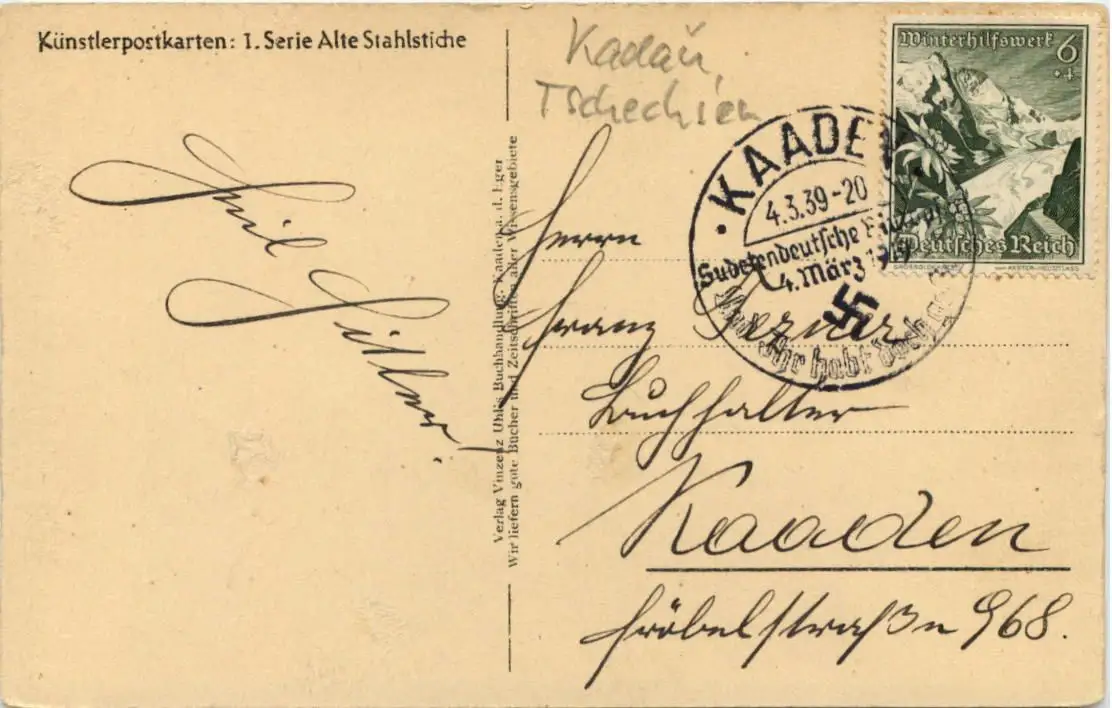 Künstlerpostkarten: 1. Serie Alte Stahlstiche
Heil Hitler!
Verlag Vinzenz Uhl's Buchhandlung, Kaaden a. d. Eger
Wir liefern gute Bücher und Zeitschriften aller Wissensgebiete
Kadaň,
Tschechien
Winterhilfswerk 6
+4
Deutsches Reich
KAADEN
4.3.39-20
Sudetendeutsche
4. März 1919
Und Ihr habt doch
Herrn
Franz
Buchhalter
Kaaden
Fröbelstraße 968.